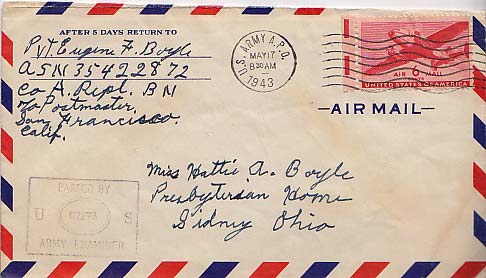 AFTER 5 DAYS RETURN TO
Pvt. Eugene F. Boyle
ASN 35422872
Co A. Repl. BN
℅ Postmaster,
San Francisco.
Calif.
U.S. ARMY A.P.O.
MAY 17
8 30 AM
1943
AIR 6¢ MAIL
UNITED STATES OF AMERICA
AIR MAIL
Miss Hattie A. Boyle
Presbyterian Home
Sidney Ohio
PASSED BY
U S
ARMY EXAMINER